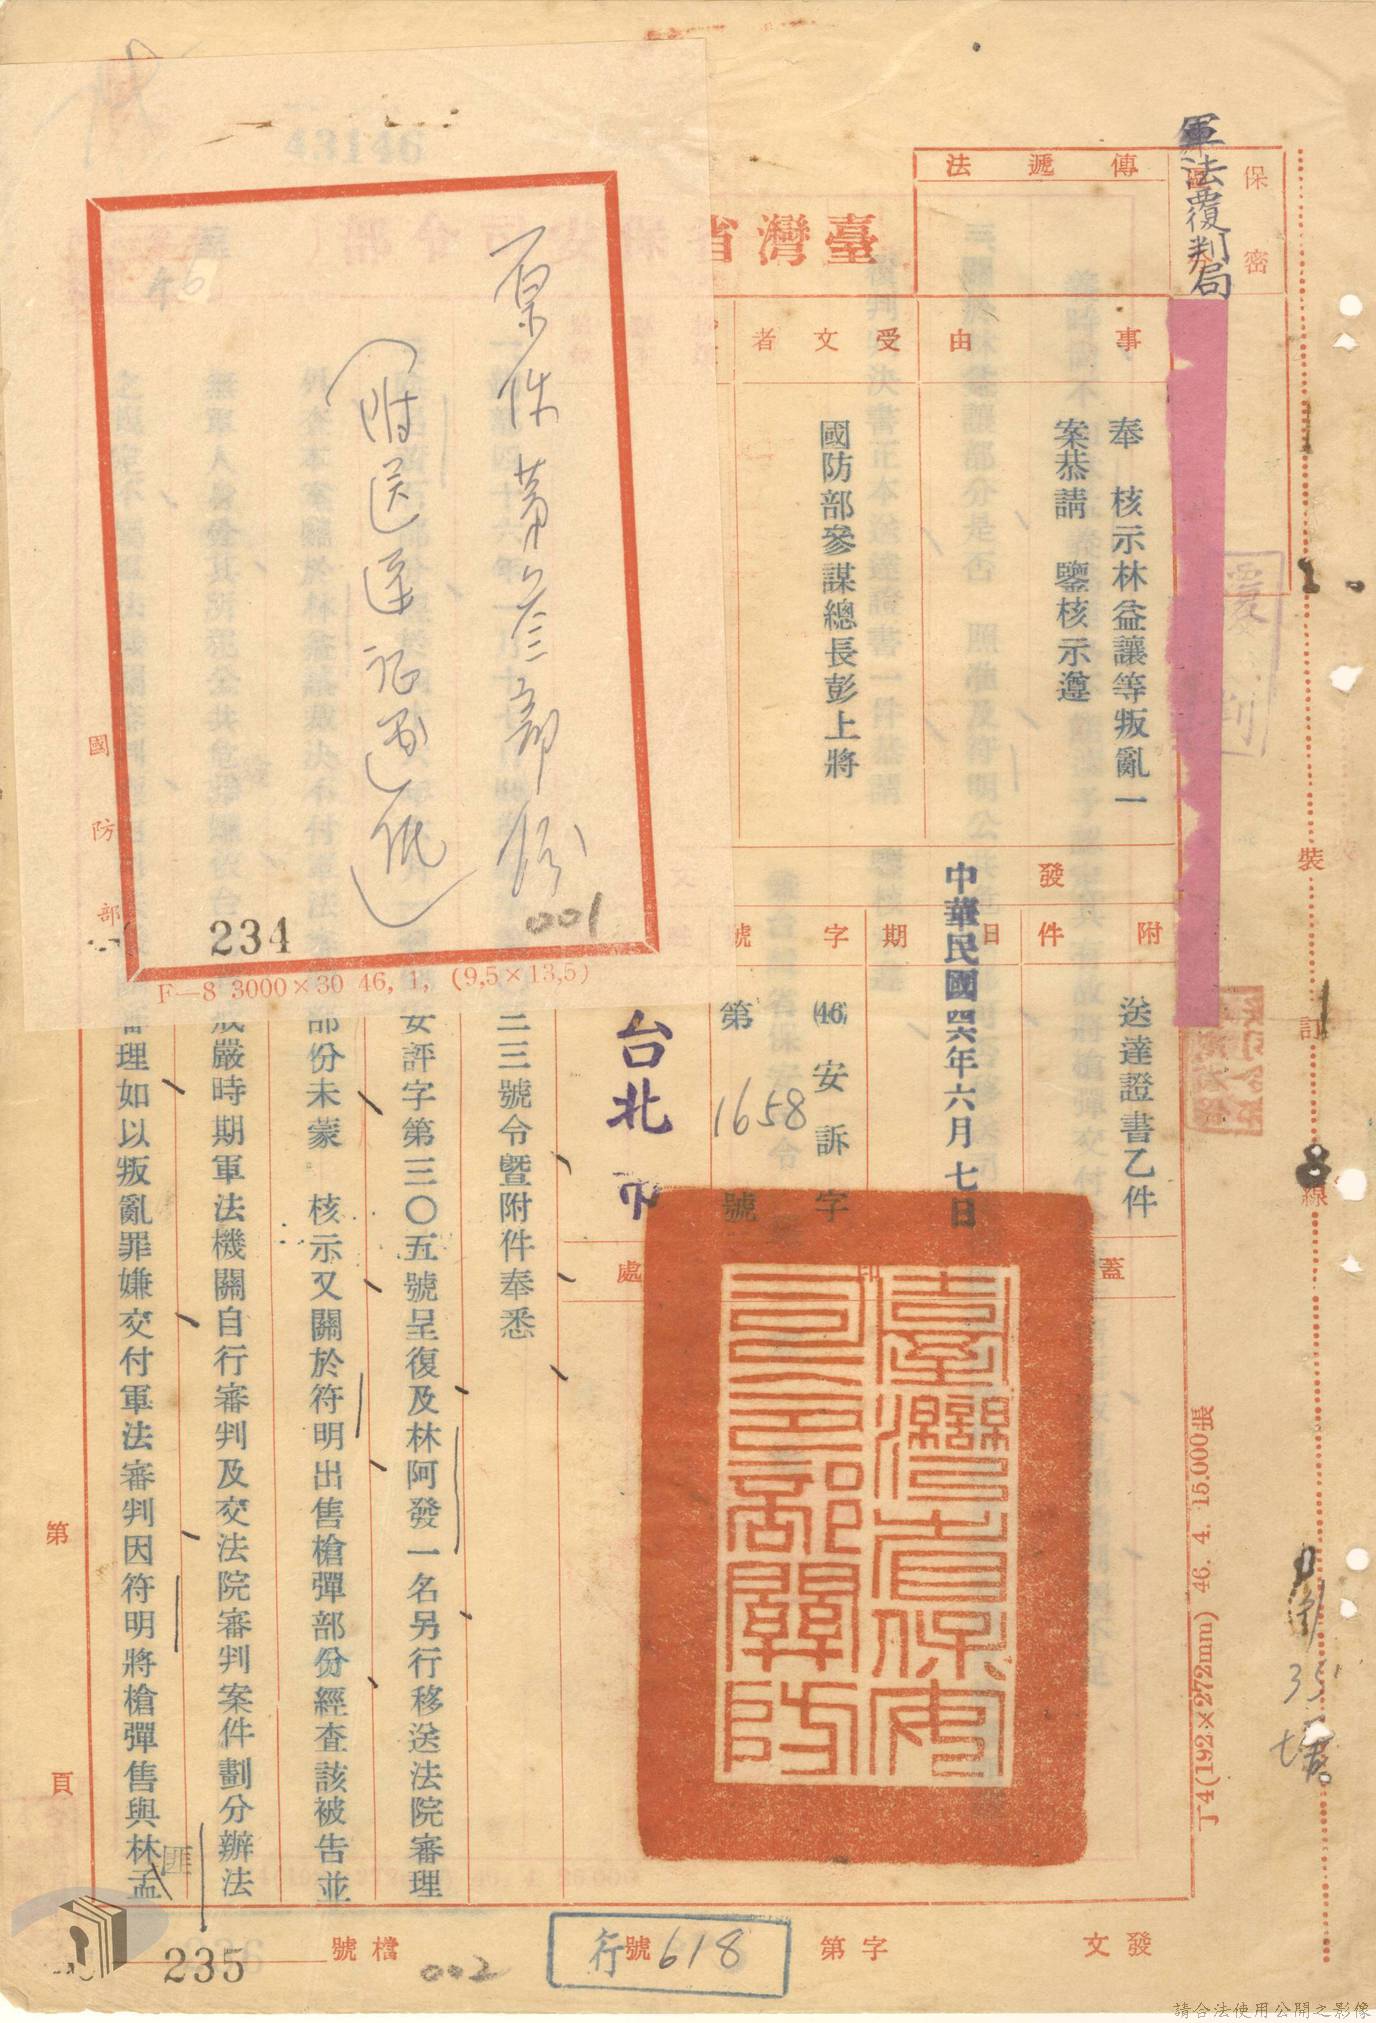 軍法覆判局
保密
傳遞法
臺灣省
事由
奉　核示林益讓等叛亂一
案恭請　鑒核示遵
受文者
國防部參謀總長彭上將
附件
送達證書乙件
發
日期
中華民國四六年六月七日
字號
(46)安訴字
第1658號
蓋印處
臺灣省保安司令部關防
台北市
三三號令暨附件奉悉
安評字第三〇五號呈復及林阿發一名另行移送法院審理
部份未蒙　核示又關於符明出售槍彈部份經查該被告並
戒嚴時期軍法機關自行審判及交法院審判案件劃分辦法
審理如以叛亂罪嫌交付軍法審判因符明將槍彈售與林孟
匪
原件第叁部份
(附送達証書退仳)
001
234
國防部
F—8 3000×30 46, 1, (9,5×13,5)
裝
訂
線
丁4(192×272mm) 46. 4. 15.000張
覆判
35
第
頁
發文
字第
行號618
檔號
002
235
請合法使用公開之影像